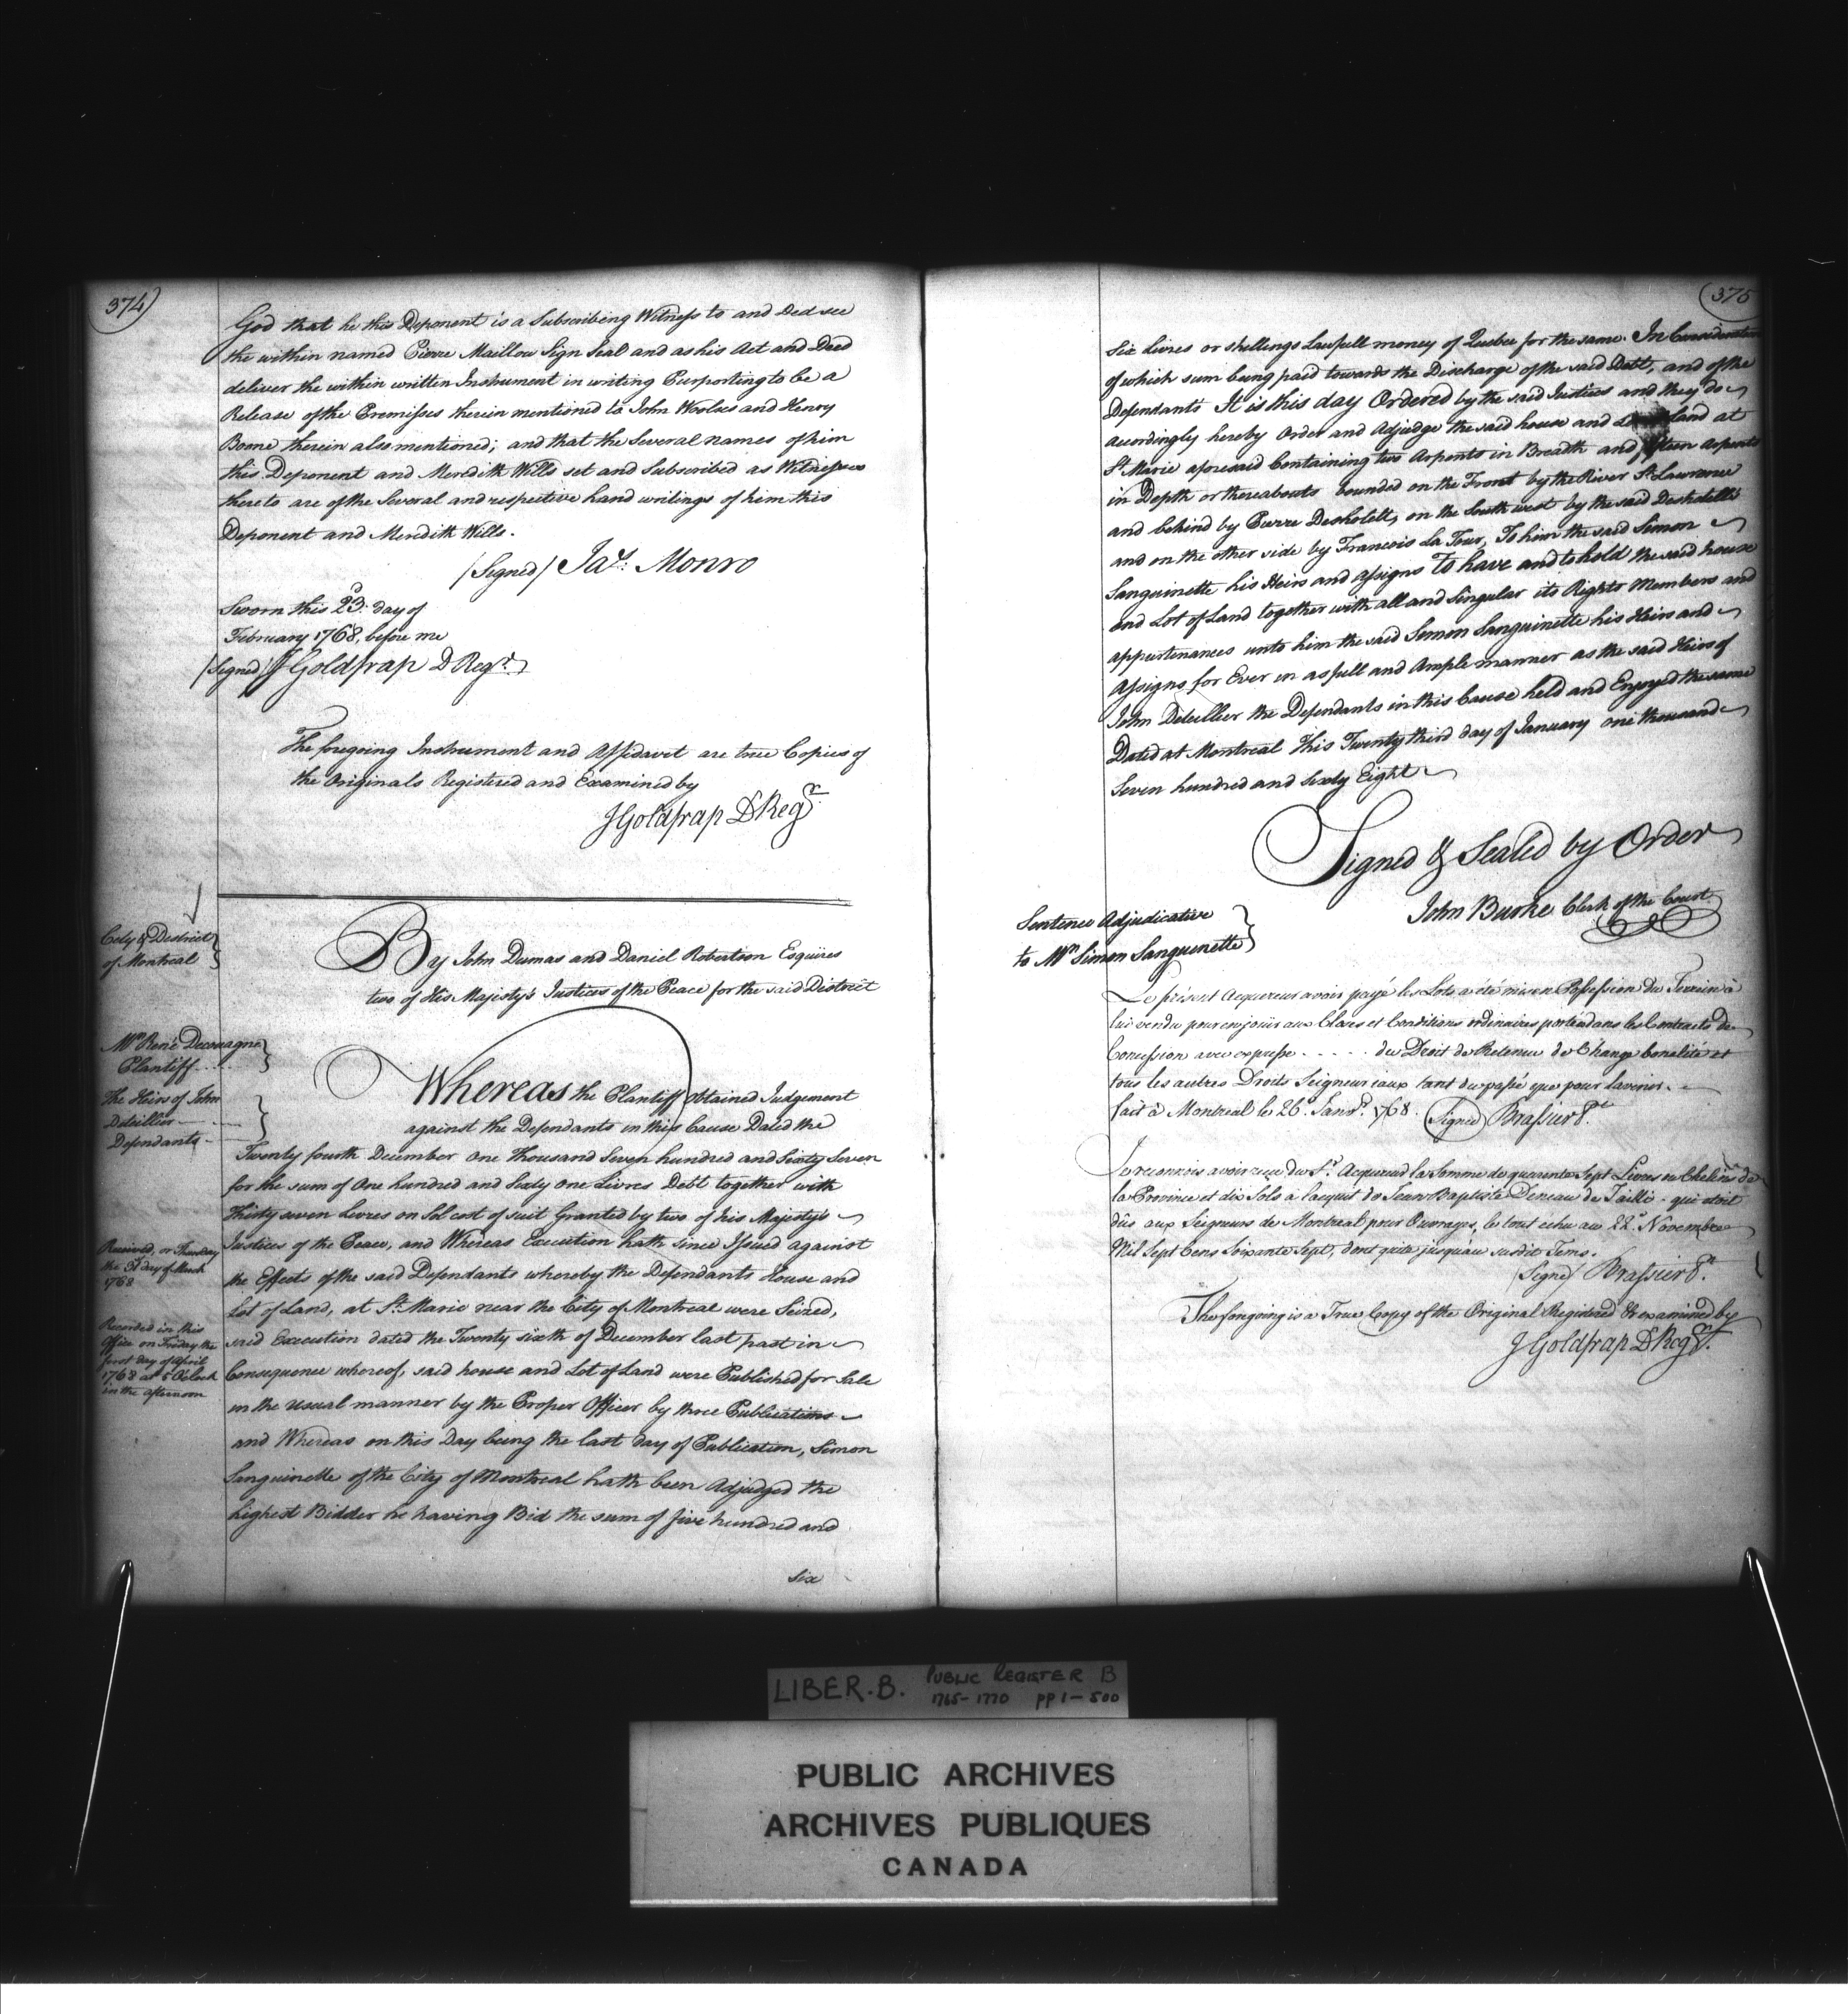 374
God that he this Deponent is a Subscribing Witness to and Did see
the within named Pierre Maillou Sign Seal and as his Act and Deed
deliver the within written Instrument in writing Purporting to be a
Release of the Premisses therein mentioned to John Woolsee and Henry
Boone therein also mentioned; and that the Several names of him
this Deponent and Meredith Wills set and Subscribed as Witnesses
thereto are of the Several and respective hand writings of him this
Deponent and Meredith Wills.
(Signed) Jas. Monro
Sworn this 23d. day of
February 1768, before me
(Signed) J Goldfrap D Regr.
The foregoing Instrument and Affidavit are true Copies of
the Originals Registered and Examined by
J Goldfrap D Regr.
City & District
of Montreal
By John Dumas and Daniel Robertson Esquires
two of His Majesty's Justices of the Peace for the said District
Mr. René Decouagne
Plantiff
The Heirs of John
Deteillier
Defendants
Whereas the Plantiff obtained Judgement
against the Defendants in this Cause Dated the
Twenty fourth December one Thousand Seven hundred and Sixty Seven
for the sum of One hundred and Sixty One Livres Debt together with
Thirty seven Livres on Sol cost of suit Granted by two of his Majesty's
Justices of the Peace, and Whereas Execution hath since Issued against
the Effects of the said Defendants whereby the Defendants House and
Lot of Land, at St. Marie near the City of Montreal were Seized,
said Execution dated the Twenty sixth of December last past in
Consequence whereof, said house and Lot of Land were Published for Sale
in the usual manner by the Proper Officer by three Publications
and Whereas on this Day being the last day of Publication, Simon
Sanguinette of the City of Montreal hath been Adjudged the
highest Bidder he having Bid the sum of five hundred and
six
Received, on Thursday
the 3d day of March
1768
Recorded in this
Office on Friday the
first day of April
1768 at 5 OClock
in the afternoon
375
Six Livres or shillings Lawfull money of Quebec for the same. In Consideration
of which sum being paid towards the Discharge of the said Debt, and of the
Defendants It is this day Ordered by the said Justices and they do
accordingly hereby Order and Adjudge the said house and Land at
St. Marie aforesaid Containing two Arpents in Breadth and fifteen arpents
in Depth or thereabouts bounded on the Front by the River St. Lawrence
and behind by Pierre Desholett, on the South west by the said Desholetts
and on the other side by Francois La Tour, To him the said Simon
Sanguinette his Heirs and Assigns To have and to hold the said house
and Lot of Land together with all and Singular its Rights Members and
appurtenances unto him the said Simon Sanguinette his Heirs and
Assigns for Ever in as full and Ample manner as the said Heirs of
John Deteillier the Defendants in this Cause held and Enjoyed the same
Dated at Montreal This Twenty third day of January one thousand
Seven hundred and Sixty Eight
Signed & Sealed by Order
John Burke Clerk of the Court
Sentence Adjudicative
to Mr. Simon Sanguinette
Le présent Acquereur avoir payé les Lots a été mis en Possession du Terrein à
lui vendu pour en joüir aux Clauses et Conditions ordinaires portés dans les Contracts de
Concession avec expresse ..... du Droit de Retenue de Change bonalité et
tous les autres Droits Seigneuriaux tant du passé que pour l'avenir.
fait à Montreal le 26. Janvr. 1768. (Signed) Brassier Pt.
Je reconnois avoir reçu du Sr. Acquereur la Somme de quarente Sept Livres ou Chelins de
la Province et dix Sols à l'acquit de Jean Baptiste Deneau de Taillé - qui étoit
dûs aux Seigneurs de Montreal pour Ouvrages, le tout échu au 22e. Novembre
Mil Sept Cens Soixante Sept, dont quite jusqu'au susdit Tems.
(Signé) Brassier Pt.
The foregoing is a True Copy of the Original Registered & examined by
J Goldfrap D Regr.
LIBER.B. PUBLIC REGISTER B
1765-1770 pp 1-500
PUBLIC ARCHIVES
ARCHIVES PUBLIQUES
CANADA